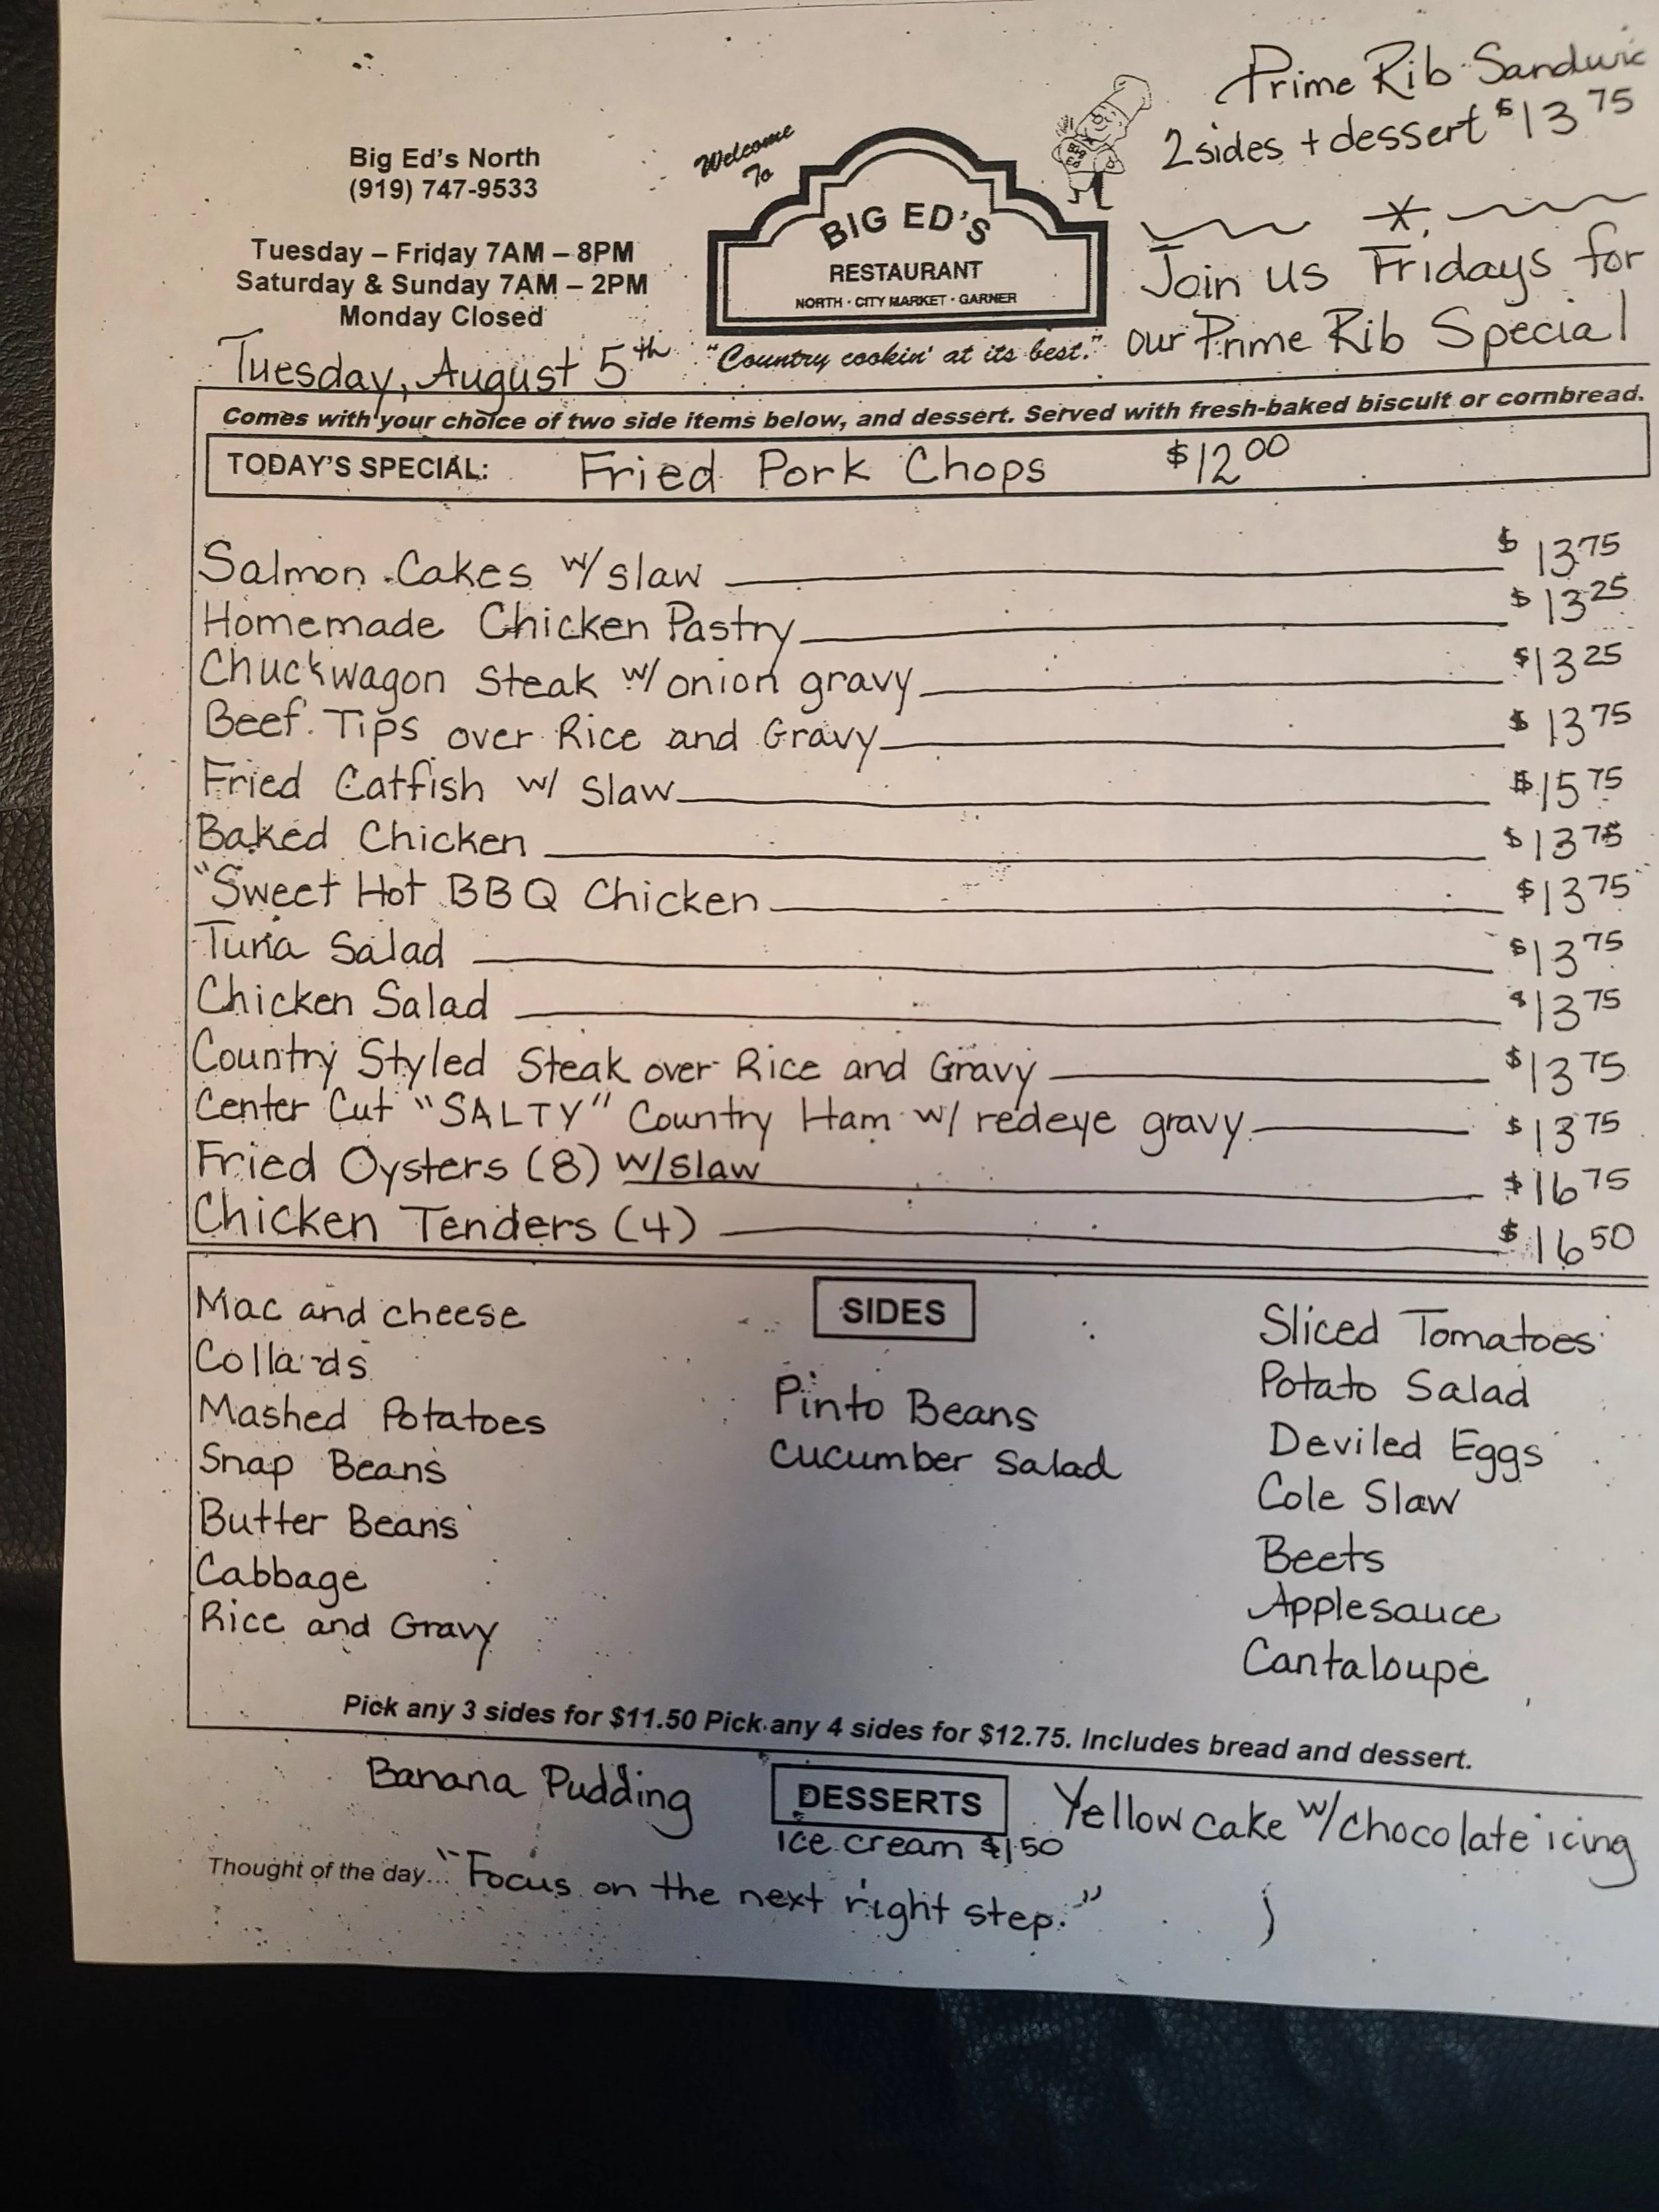 Prime Rib Sandwic
2 sides + dessert $13 75
Join us Fridays for
our Prime Rib Special
Big Ed's North
(919) 747-9533
Tuesday – Friday 7AM – 8PM
Saturday & Sunday 7AM – 2PM
Monday Closed
Welcome
To
BIG ED'S
RESTAURANT
NORTH · CITY MARKET · GARNER
"Country cookin' at its best."
BIG
ED
Tuesday, August 5th
Comes with your choice of two side items below, and dessert. Served with fresh-baked biscuit or cornbread.
TODAY'S SPECIAL: Fried Pork Chops $12 00
Salmon Cakes w/ slaw $ 13 75
Homemade Chicken Pastry $ 13 25
Chuckwagon Steak w/ onion gravy $13 25
Beef Tips over Rice and Gravy $ 13 75
Fried Catfish w/ Slaw $15 75
Baked Chicken $13 75
"Sweet Hot BBQ Chicken $13 75
Tuna Salad $13 75
Chicken Salad $13 75
Country Styled Steak over Rice and Gravy $13 75
Center Cut "SALTY" Country Ham w/ redeye gravy $13 75
Fried Oysters (8) w/slaw $16 75
Chicken Tenders (4) $16 50
SIDES
Mac and cheese
Collards
Mashed Potatoes
Snap Beans
Butter Beans
Cabbage
Rice and Gravy
Pinto Beans
Cucumber Salad
Sliced Tomatoes
Potato Salad
Deviled Eggs
Cole Slaw
Beets
Applesauce
Cantaloupe
Pick any 3 sides for $11.50 Pick any 4 sides for $12.75. Includes bread and dessert.
DESSERTS
Banana Pudding
Ice cream $1.50
Yellow cake w/chocolate icing
Thought of the day... "Focus on the next right step."